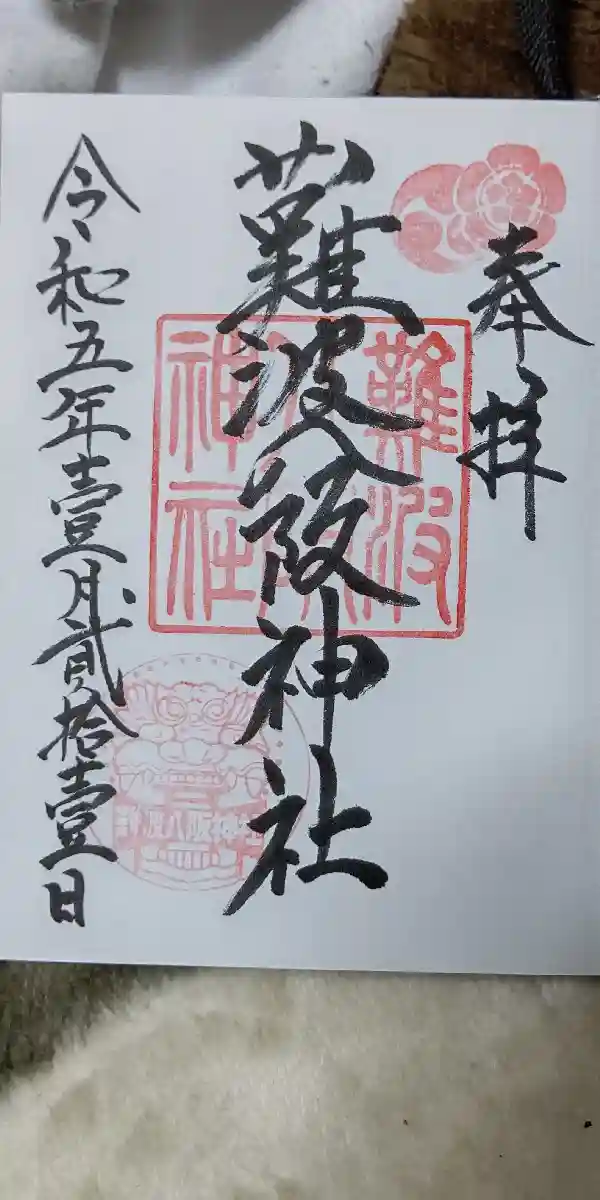 奉拝
難波八阪神社
難波八阪神社
令和五年壹月貳拾壹日
難波八阪神社